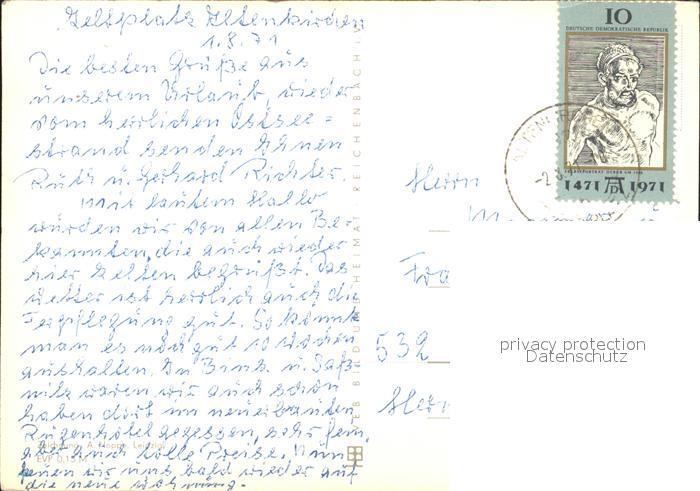 Zeltplatz Altenkirchen
1.8.71
Die besten Grüße aus
unserem Urlaub, wieder
vom herrlichen Ostsee=
strand senden Ihnen
Ruth u. Gerhard Richter.
Mit lautem Hallo
wurden wir von allen Be-
kannten, die auch wieder
hier zelten begrüßt. Das
Wetter ist herrlich auch die
Verpflegung gut. So könnte
man es noch gut 10 Wochen
aushalten. In Binz u. Saß=
nitz waren wir auch schon
haben dort im neuerbauten
Rügenhotel gegessen, sehr fein,
aber auch tolle Preise. Nun
freuen wir uns bald wieder auf
die neue Wohnung.
Zeichnung: A. Hoppe, Leipzig
EVP 0,15 M
VEB BILD UND HEIMAT REICHENBACH I. V.
10
DEUTSCHE DEMOKRATISCHE REPUBLIK
1471 AD 1971
-2.8.
Herrn
532
privacy protection
Datenschutz